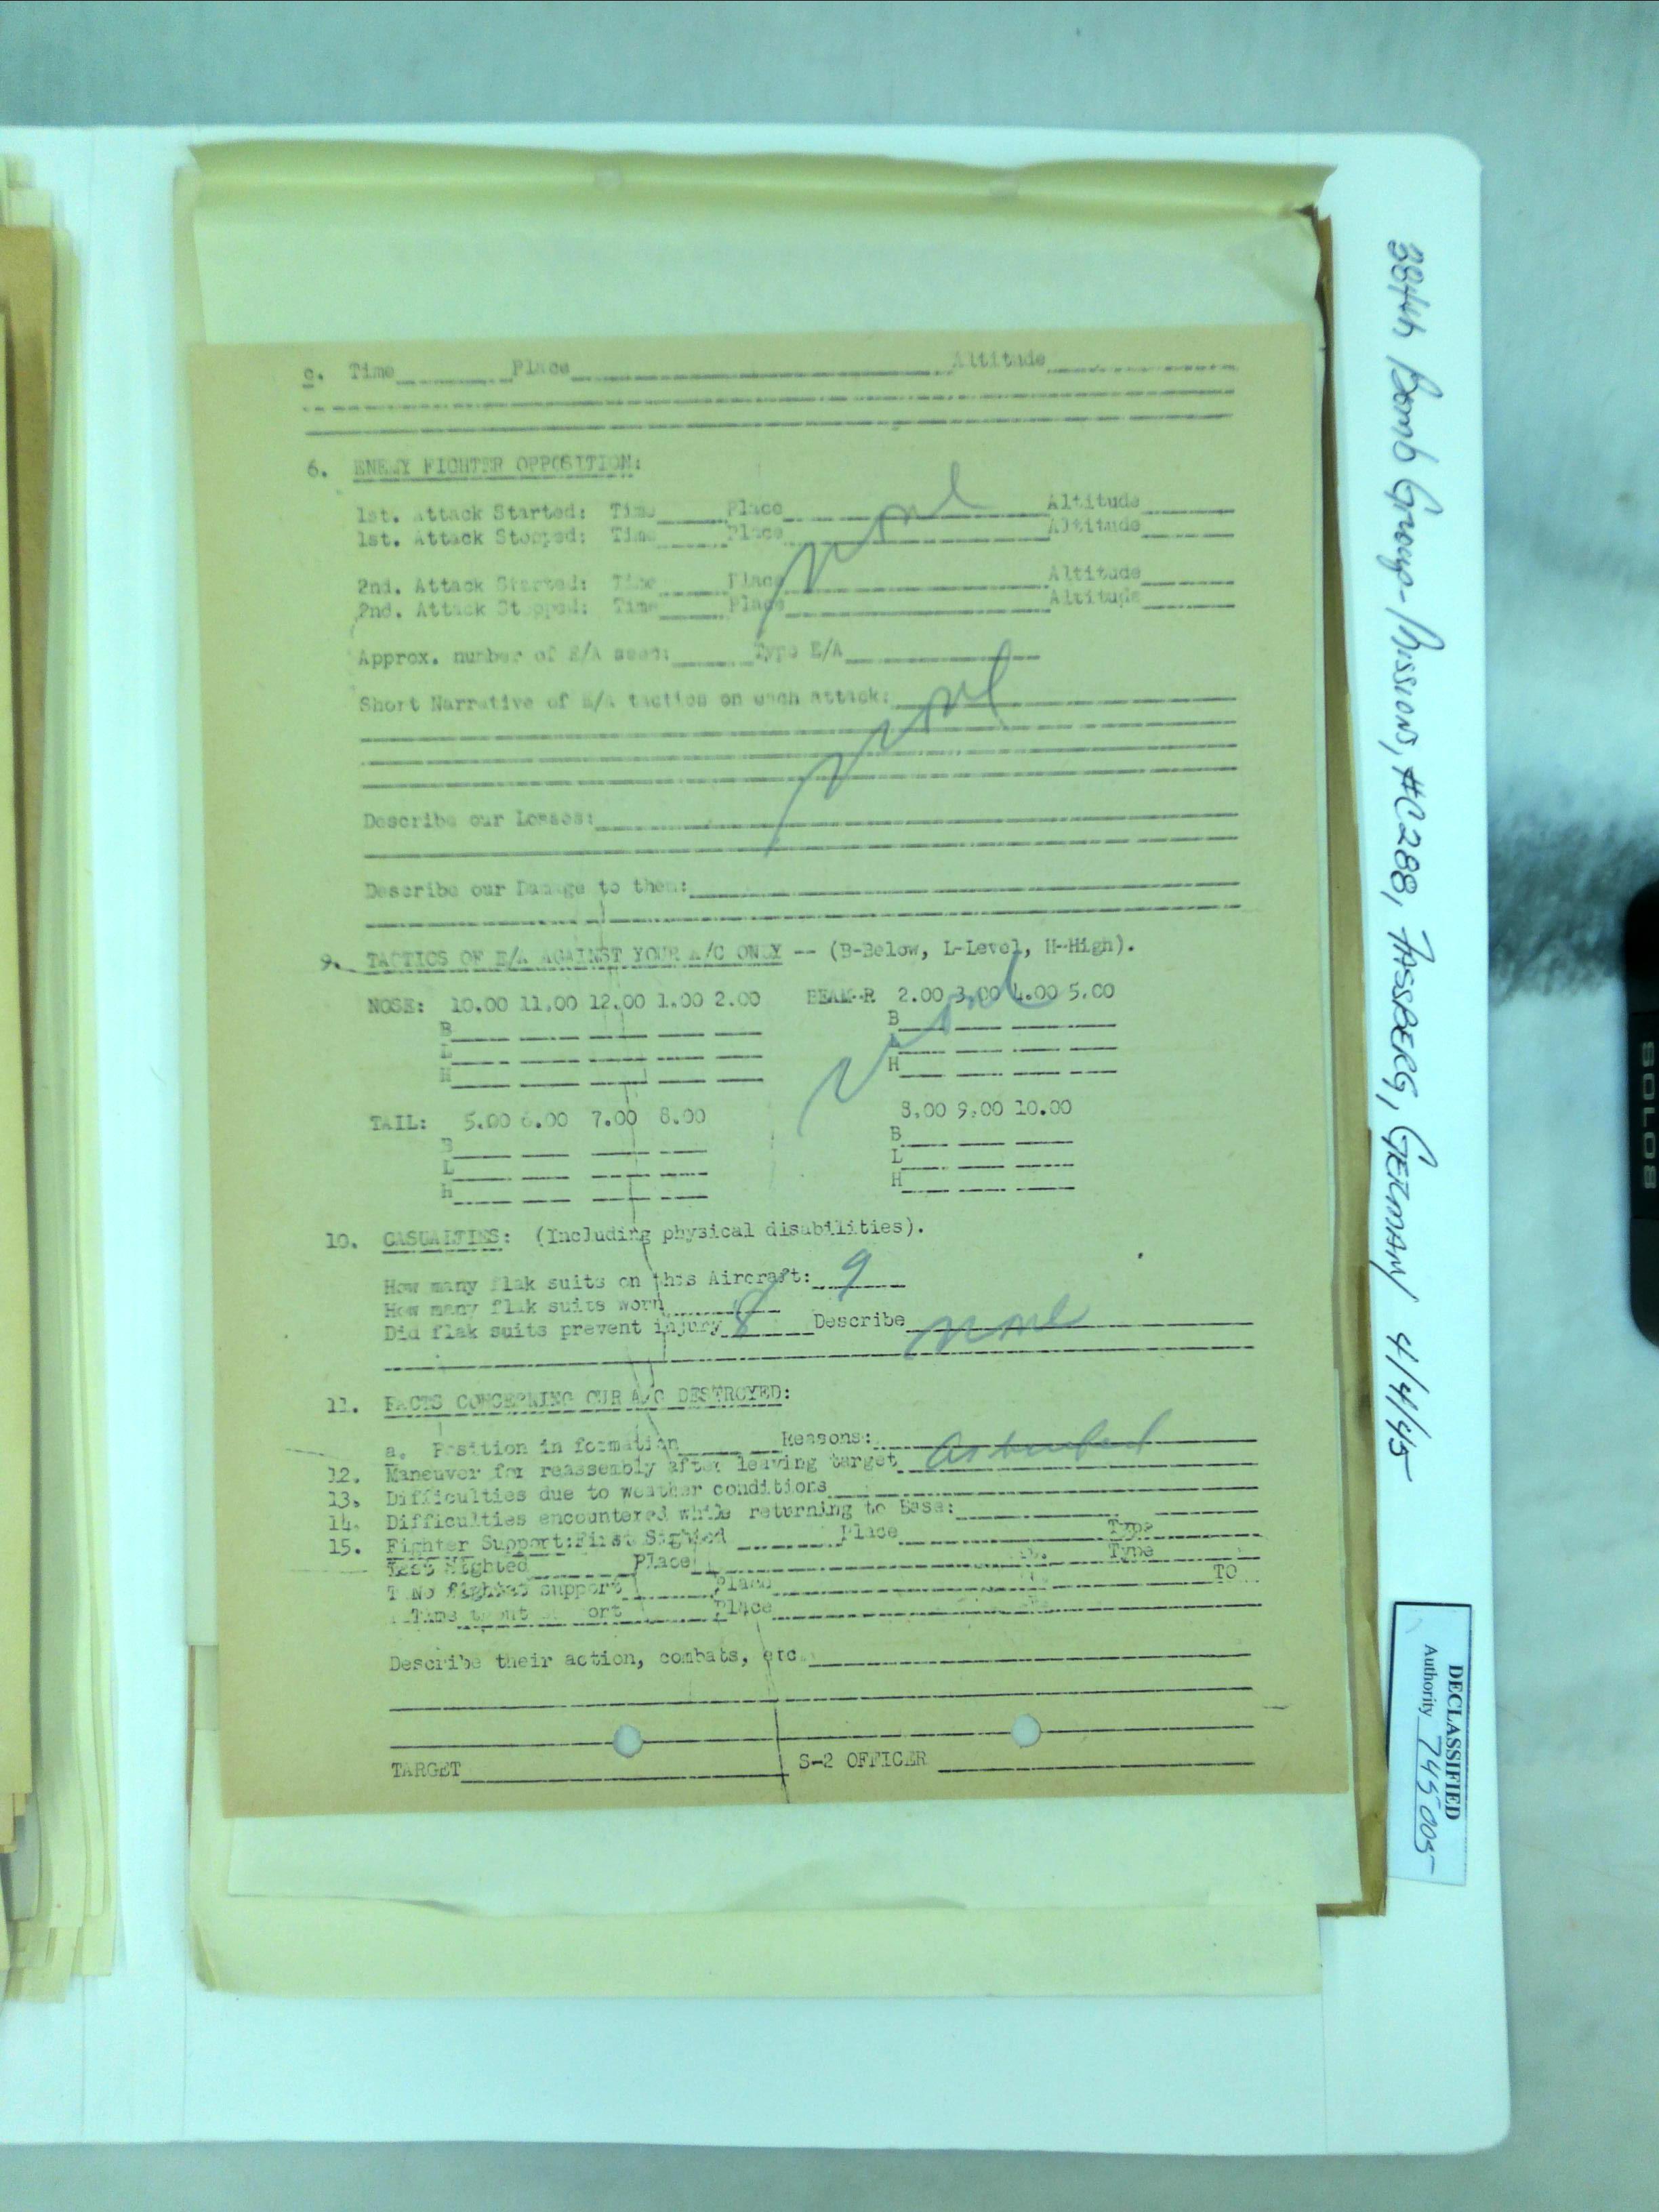 c. Time Place Altitude
6. ENEMY FIGHTER OPPOSITION:
1st. Attack Started: Time Place Altitude
1st. Attack Stopped: Time Place Altitude
none
2nd. Attack Started: Time Place Altitude
2nd. Attack Stopped: Time Place Altitude
Approx. number of E/A seen: Type E/A
Short Narrative of E/A tactics on each attack:
none
Describe our Losses:
Describe our Damage to them:
9. TACTICS OF E/A AGAINST YOUR A/C ONLY -- (B-Below, L-Level, H-High).
NOSE: 10.00 11.00 12.00 1.00 2.00 BEAM-R 2.00 3.00 4.00 5.00
B B
L L
H H
none
TAIL: 5.00 6.00 7.00 8.00 8.00 9.00 10.00
B B
L L
H H
10. CASUALTIES: (Including physical disabilities).
How many flak suits on this Aircraft: 9
How many flak suits worn 8
Did flak suits prevent injury Describe none
11. FACTS CONCERNING OUR A/C DESTROYED:
a. Position in formation Reasons:
12. Maneuver for reassembly after leaving target as briefed
13. Difficulties due to weather conditions
14. Difficulties encountered while returning to Base:
15. Fighter Support: First Sighted Place Type
Last Sighted Place Type
No support Place TO
Place
Describe their action, combats, etc.
TARGET S-2 OFFICER
384th Bomb Group-Missions, #C288, FASSBERG, GERMANY 4/4/45
DECLASSIFIED
Authority 745005
SOLOS